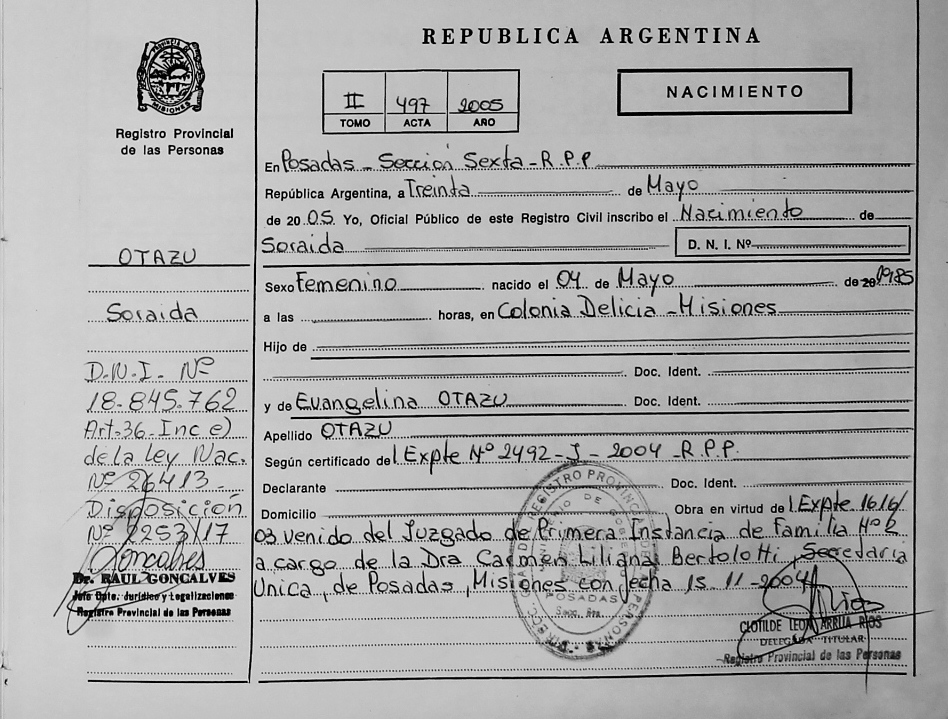 REPUBLICA ARGENTINA
PROVINCIA DE
MISIONES
Registro Provincial
de las Personas
II 497 2005
TOMO ACTA AÑO
NACIMIENTO
En Posadas - Sección Sexta - R.P.P
República Argentina, a Treinta de Mayo
de 20 05 Yo, Oficial Público de este Registro Civil inscribo el Nacimiento de
Soraida D. N. I. Nº
Sexo Femenino nacido el 04 de Mayo de 20 1985
a las horas, en Colonia Delicia - Misiones
Hijo de
Doc. Ident.
y de Evangelina OTAZU Doc. Ident.
Apellido OTAZU
Según certificado del Expte Nº 2492 - J - 2004 - R.P.P.
Declarante Doc. Ident.
Domicilio Obra en virtud del Expte 1616/
03 venido del Juzgado de Primera Instancia de Familia Nº 2
a cargo de la Dra Carmen Liliana Bertolotti, Secretaria
Unica, de Posadas, Misiones con fecha 15-11-2004
OTAZU
Soraida
D.N.I. Nº
18.845.762
Art. 36 - Inc e)
de la ley Nac.
Nº 26413 -
Disposición
Nº 2253/17
Goncalves
Dr. RAUL GONCALVES
Jefe Dpto. Jurídico y Legalizaciones
Registro Provincial de las Personas
REGISTRO PROVINCIAL
PERSONAS
POSADAS
Secc. 6ta.
Rios
CLOTILDE LEONARRIJA RIOS
DELEGADA TITULAR
Registro Provincial de las Personas